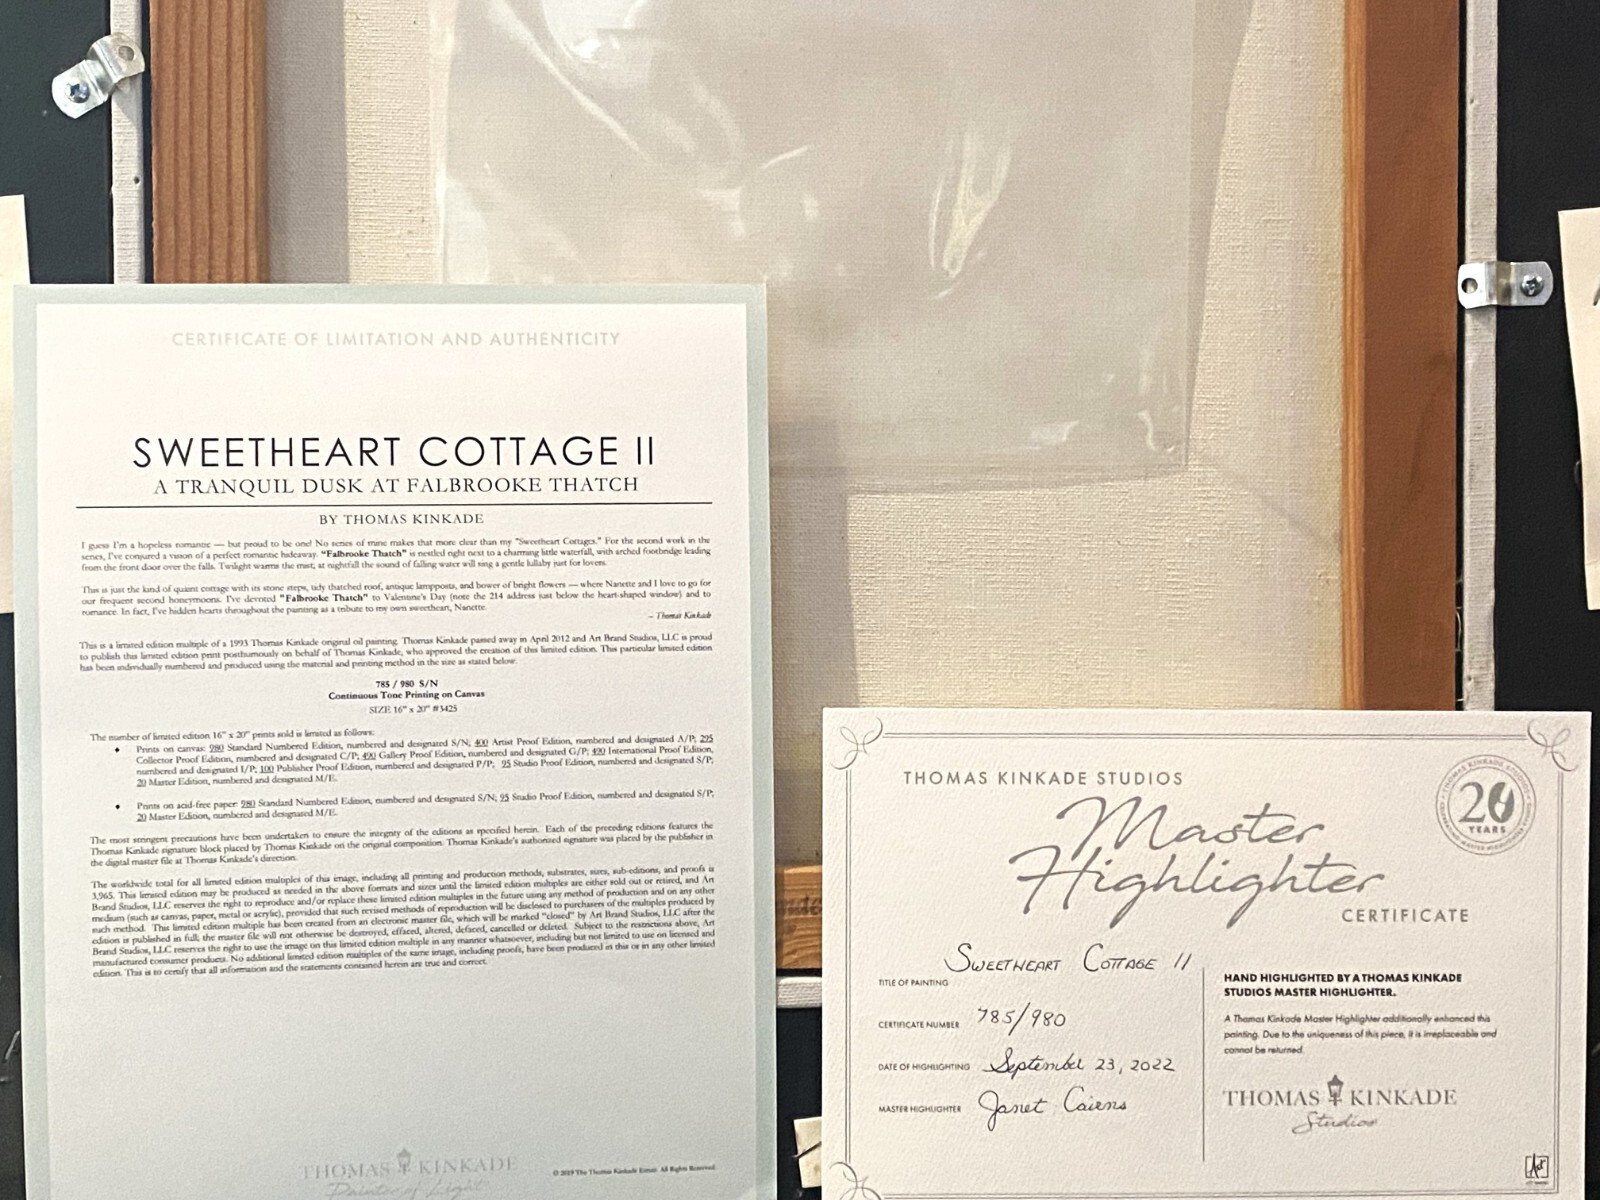 CERTIFICATE OF LIMITATION AND AUTHENTICITY
SWEETHEART COTTAGE II
A TRANQUIL DUSK AT FALBROOKE THATCH
BY THOMAS KINKADE
I guess I'm a hopeless romantic — but proud to be one! No series of mine makes that more clear than my "Sweetheart Cottages." For the second work in the
series, I've conjured a vision of a perfect romantic hideaway. "Falbrooke Thatch" is nestled right next to a charming little waterfall, with arched footbridge leading
from the front door over the falls. Twilight warms the mist; at nightfall the sound of falling water will sing a gentle lullaby just for lovers.
This is just the kind of quaint cottage with its stone steps, tidy thatched roof, antique lampposts, and bower of bright flowers — where Nanette and I love to go for
our frequent second honeymoons. I've devoted "Falbrooke Thatch" to Valentine's Day (note the 214 address just below the heart-shaped window) and to
romance. In fact, I've hidden hearts throughout the painting as a tribute to my own sweetheart, Nanette.
– Thomas Kinkade
This is a limited edition multiple of a 1993 Thomas Kinkade original oil painting. Thomas Kinkade passed away in April 2012 and Art Brand Studios, LLC is proud
to publish this limited edition print posthumously on behalf of Thomas Kinkade, who approved the creation of this limited edition. This particular limited edition
has been individually numbered and produced using the material and printing method in the size as stated below.
785 / 980 S/N
Continuous Tone Printing on Canvas
SIZE 16" x 20" #3425
The number of limited edition 16" x 20" prints sold is limited as follows:
♦ Prints on canvas: 980 Standard Numbered Edition, numbered and designated S/N; 400 Artist Proof Edition, numbered and designated A/P; 295
Collector Proof Edition, numbered and designated C/P; 490 Gallery Proof Edition, numbered and designated G/P; 490 International Proof Edition,
numbered and designated I/P; 100 Publisher Proof Edition, numbered and designated P/P; 95 Studio Proof Edition, numbered and designated S/P;
20 Master Edition, numbered and designated M/E.
♦ Prints on acid-free paper: 980 Standard Numbered Edition, numbered and designated S/N; 95 Studio Proof Edition, numbered and designated S/P;
20 Master Edition, numbered and designated M/E.
The most stringent precautions have been undertaken to ensure the integrity of the editions as specified herein. Each of the preceding editions features the
Thomas Kinkade signature block placed by Thomas Kinkade on the original composition. Thomas Kinkade's authorized signature was placed by the publisher in
the digital master file at Thomas Kinkade's direction.
The worldwide total for all limited edition multiples of this image, including all printing and production methods, substrates, sizes, sub-editions, and proofs is
3,965. This limited edition may be produced as needed in the above formats and sizes until the limited edition multiples are either sold out or retired, and Art
Brand Studios, LLC reserves the right to reproduce and/or replace these limited edition multiples in the future using any method of production and on any other
medium (such as canvas, paper, metal or acrylic), provided that such revised methods of reproduction will be disclosed to purchasers of the multiples produced by
such method. This limited edition multiple has been created from an electronic master file, which will be marked "closed" by Art Brand Studios, LLC after the
edition is published in full; the master file will not otherwise be destroyed, effaced, altered, defaced, cancelled or deleted. Subject to the restrictions above, Art
Brand Studios, LLC reserves the right to use the image on this limited edition multiple in any manner whatsoever, including but not limited to use on licensed and
manufactured consumer products. No additional limited edition multiples of the same image, including proofs, have been produced in this or in any other limited
edition. This is to certify that all information and the statements contained herein are true and correct.
THOMAS KINKADE
Painter of Light
© 2019 The Thomas Kinkade Estate. All Rights Reserved.
THOMAS KINKADE STUDIOS
Master
Highlighter
CERTIFICATE
20
YEARS
SWEETHEART COTTAGE II
TITLE OF PAINTING
CERTIFICATE NUMBER 785/980
DATE OF HIGHLIGHTING September 23, 2022
MASTER HIGHLIGHTER Janet Cairns
HAND HIGHLIGHTED BY A THOMAS KINKADE
STUDIOS MASTER HIGHLIGHTER.
A Thomas Kinkade Master Highlighter additionally enhanced this
painting. Due to the uniqueness of this piece, it is irreplaceable and
cannot be returned.
THOMAS KINKADE
Studios